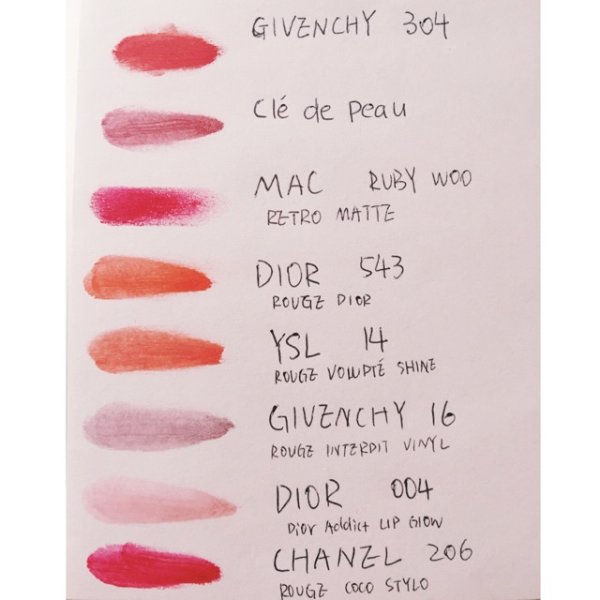 GIVENCHY 304
Clé de Peau
MAC RUBY WOO
RETRO MATTE
DIOR 543
ROUGE DIOR
YSL 14
ROUGE VOLUPTÉ SHINE
GIVENCHY 16
ROUGE INTERDIT VINYL
DIOR 004
Dior Addict LIP GLOW
CHANEL 206
ROUGE COCO STYLO